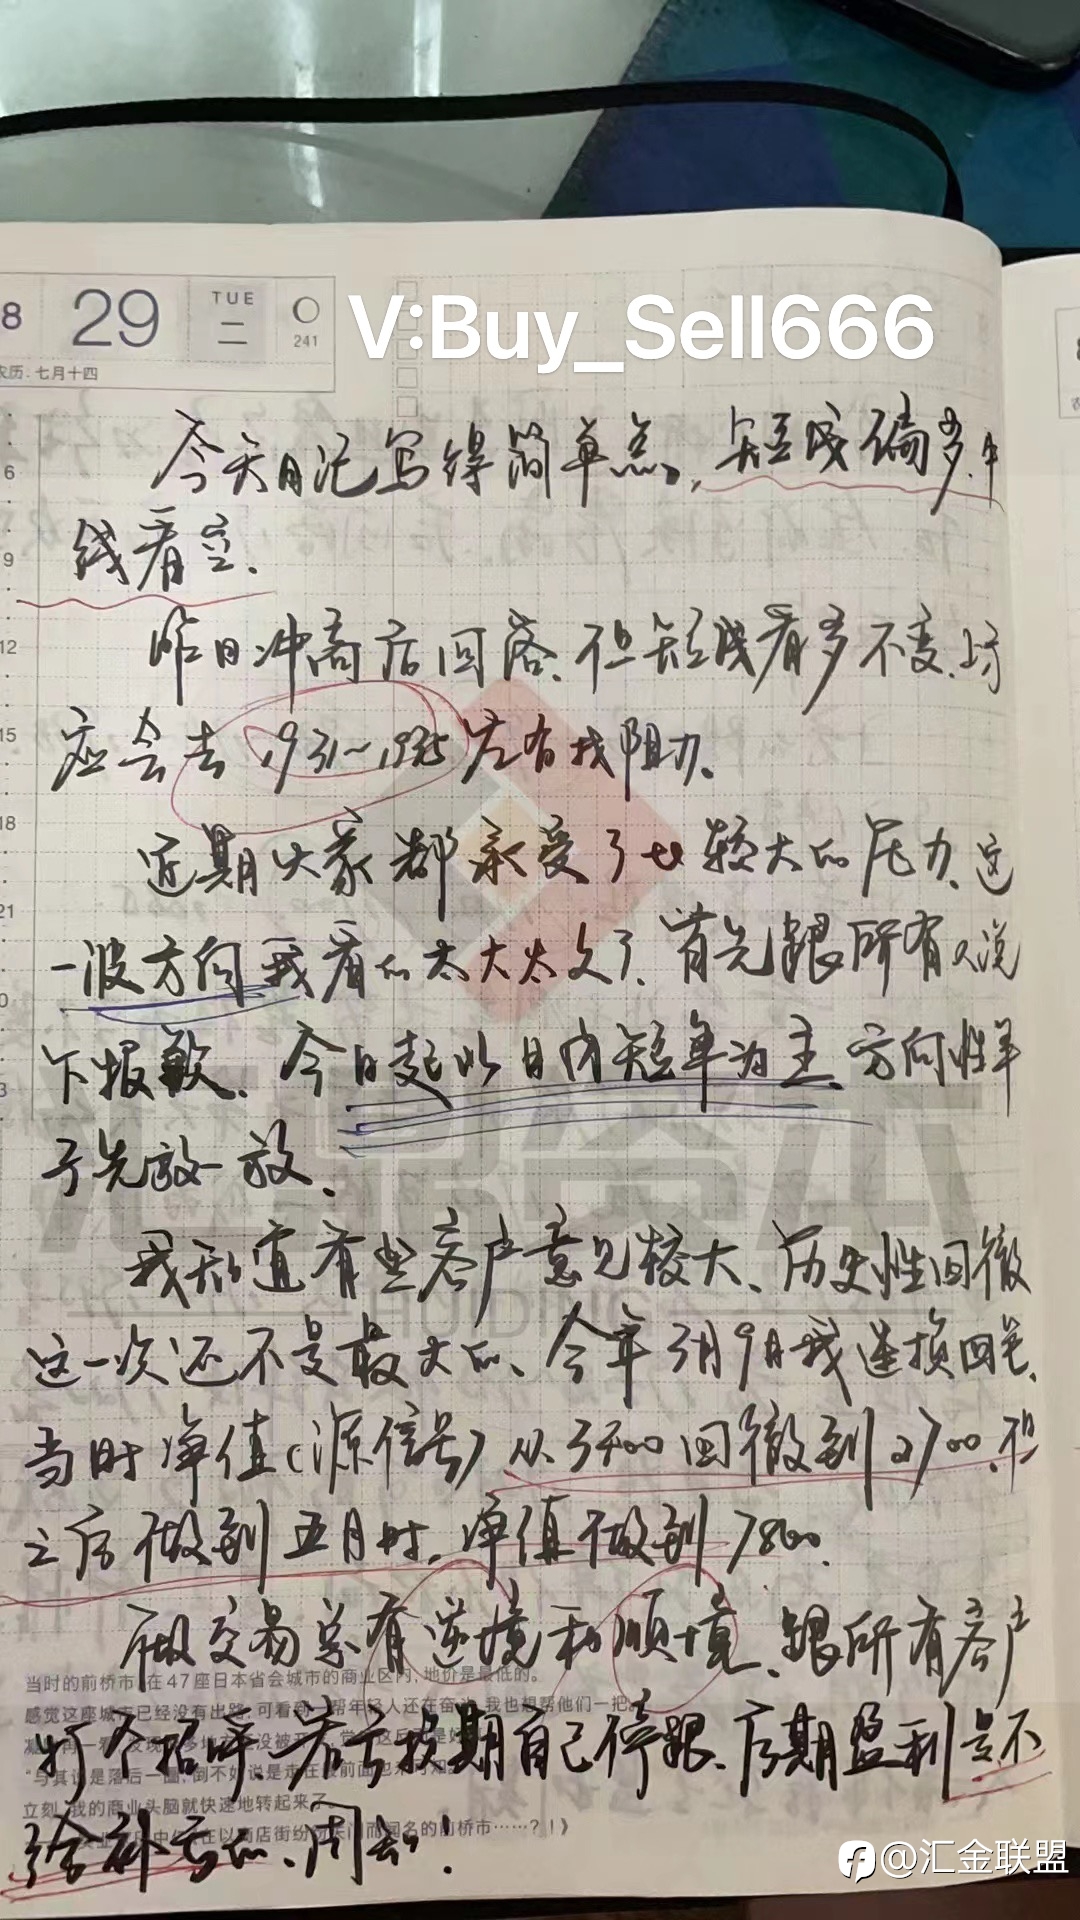 8 29 TUE 二 241
农历: 七月十四
V:Buy_Sell666
今天日记写得简单点, 短线偏多, 中
线看空.
昨日冲高后回落、但短线看多不变、日内
应会去 1931~1935 左右找阻力.
近期大家都承受了 较大的压力、这
一波方向我看的太大太久了. 首先跟所有人说
下抱歉. 今日起以日内短单为主、方向性单
子先放一放.
我知道有些客户意见较大、历史性回撤
这一次还不是最大的、今年3月9日我连损四笔、
当时净值(源信号) 从 回撤到2700、但
之后做到五月时, 净值做到7800.
做交易总有逆境和顺境、跟所有客户
打个招呼、若亏损期自己停跟、后期盈利是不
会补亏的、周知!
当时的前桥市, 在47座日本省会城市的商业区内, 地价是最低的。
感觉这座城市已经没有出路, 可看到 帮年轻人还在奋 我也想帮他们一把
立刻, 我的商业头脑就快速地转起来了
6
9
12
15
18
21
汇鼎资本
HUIDING
@汇金联盟